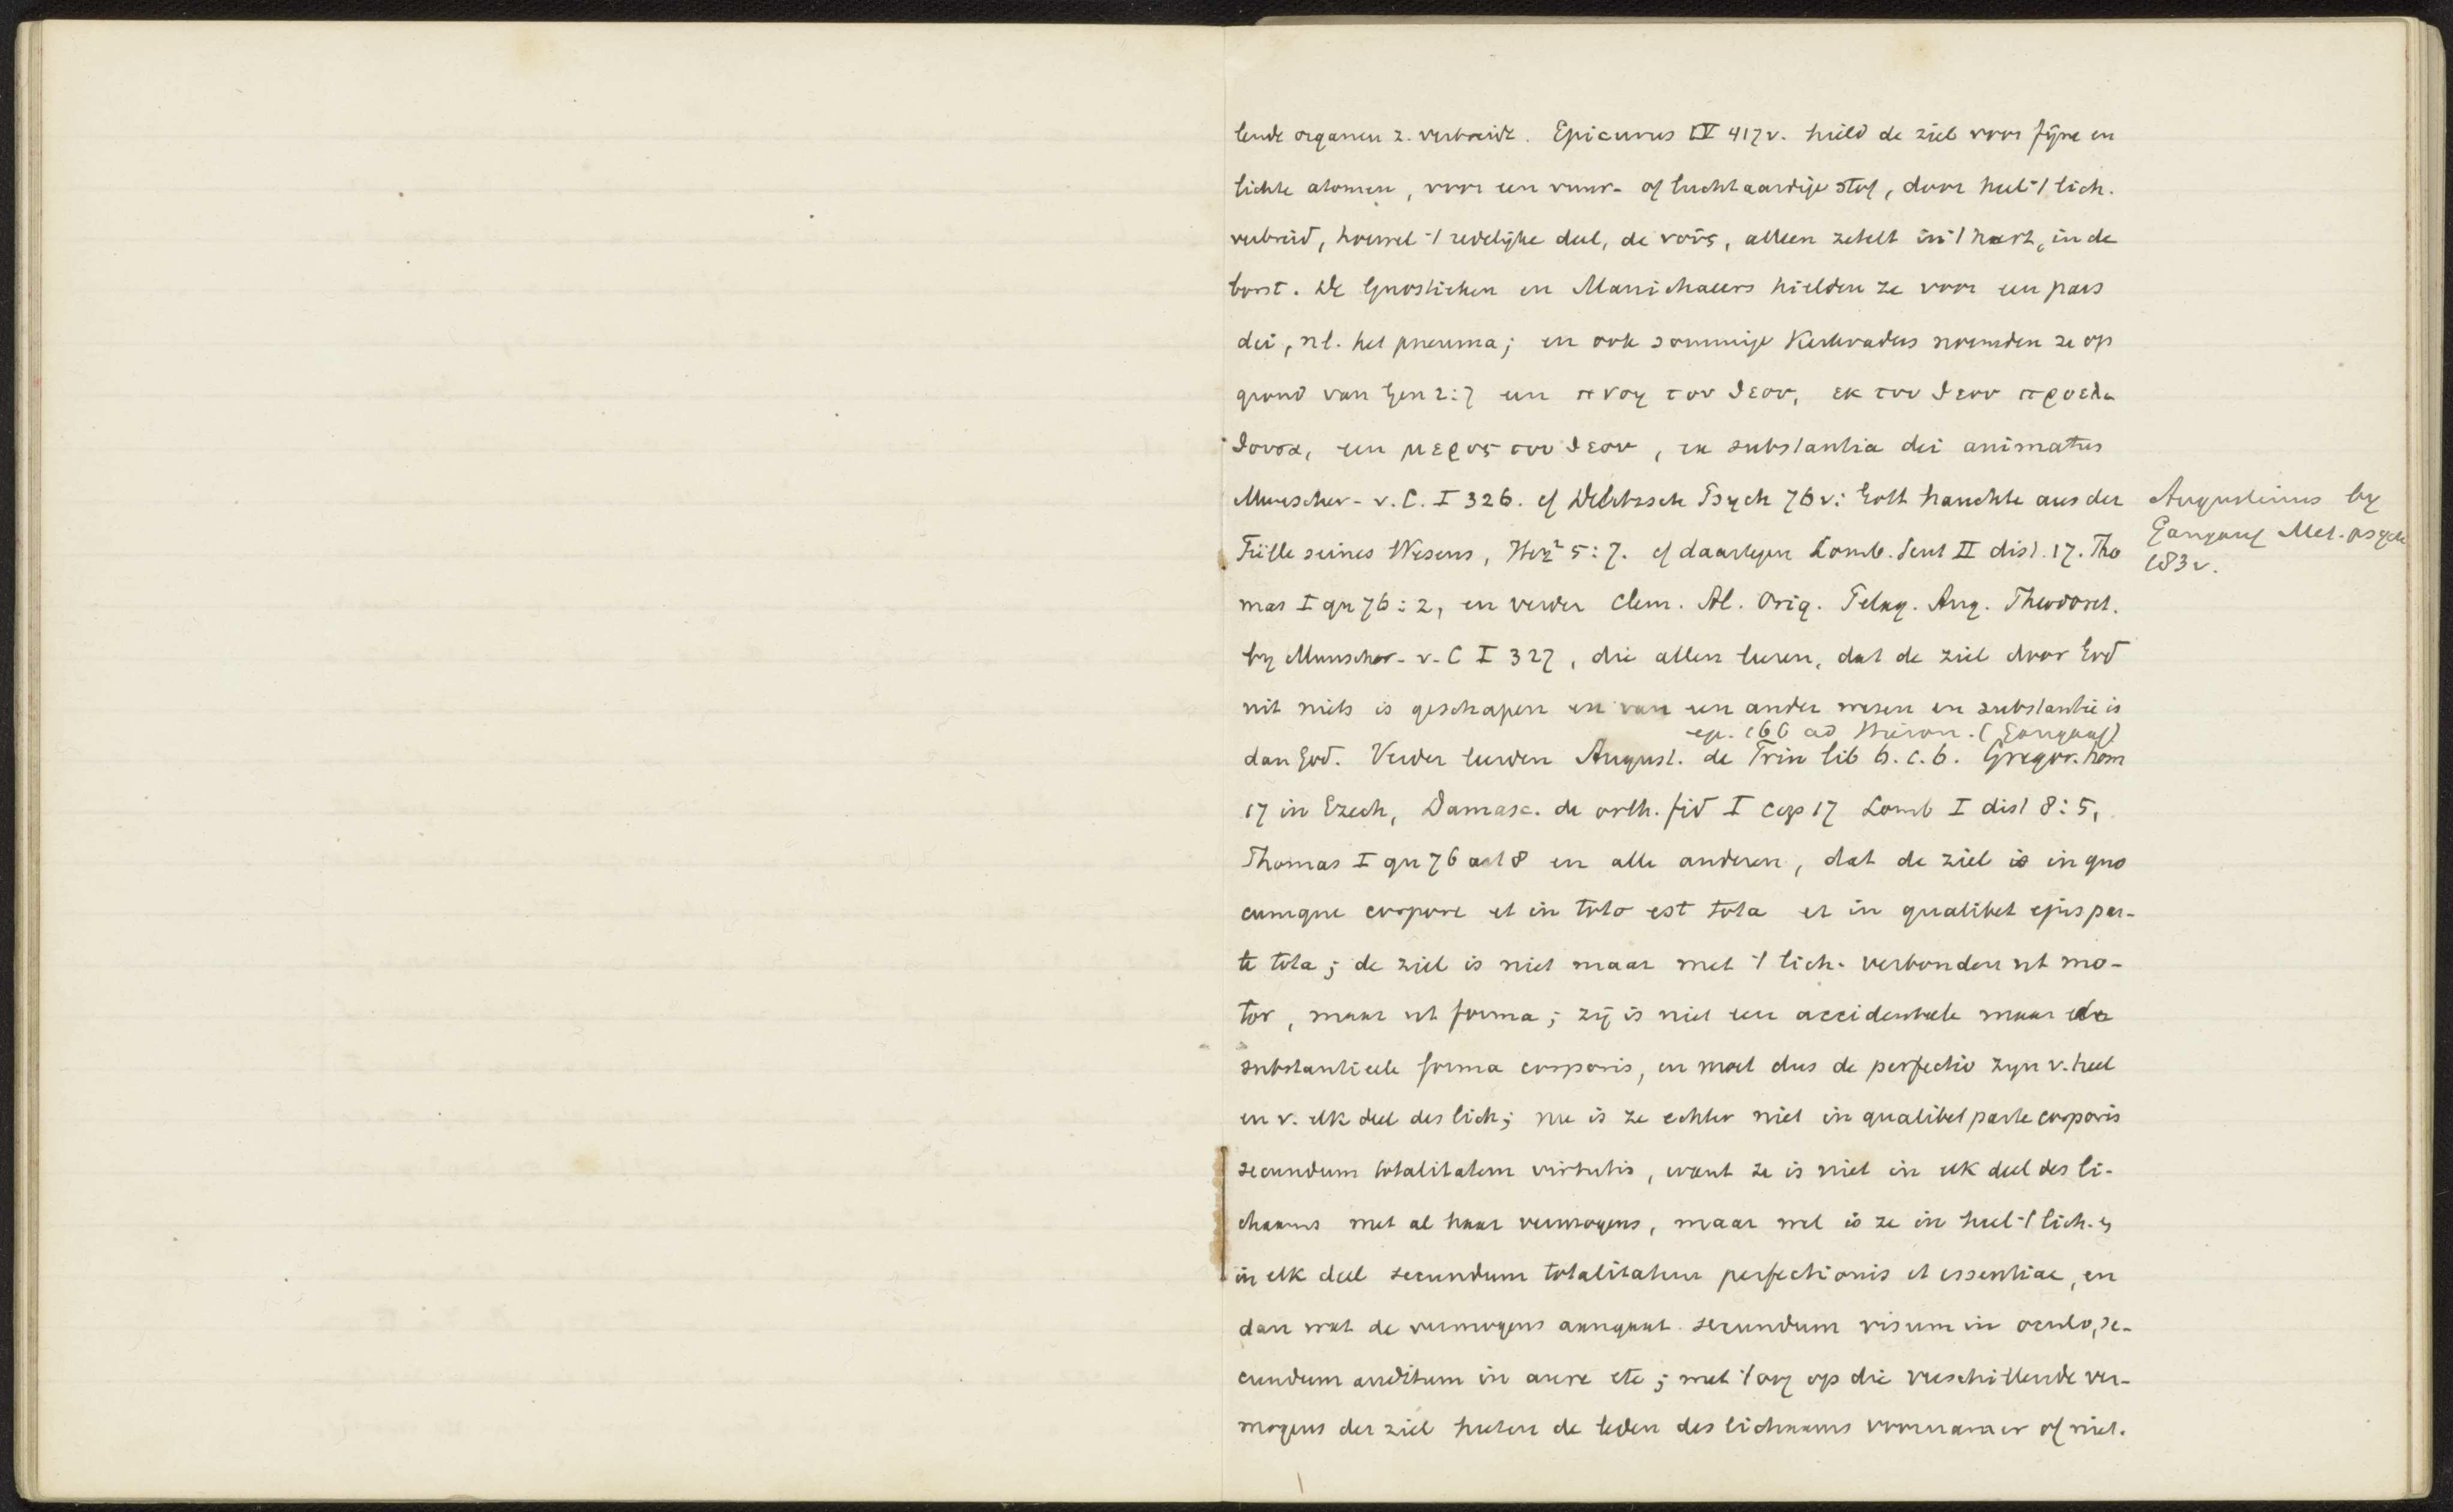 lende organen z. verbreidt. Epicurus IV 417v. hield de ziel voor fijne en
lichte atomen, voor een vuur- of luchtaardige stof, door heel 't lich.
verbreid, hoewel 't redelijke deel, de νοῦς, alleen zetelt in 't hart, in de
borst. De Gnostieken en Manichaeers hielden ze voor een pars
dei, nl. het pneuma; en ook sommige Kerkvaders noemden ze op
grond van Gen 2:7 een πνοη του θεου, εκ του θεου προελ
θουσα, een μερος του θεου, ex substantia dei animatus
Munscher- v. C. I 326. cf Delitzsch Psych 76v: Gott hauchte aus der
Fülle seines Wesens, Herz² 5:7. cf daartegen Lomb. Sent II dist. 17. Tho
mas I qu 76:2, en verder Clem. Al. Orig. Pelag. Aug. Theodoret.
by Munscher- v. C I 327, die allen leeren, dat de ziel door God
uit niets is geschapen en van een ander wezen en substantie is
ep. 166 ad Hieron. (Gangauf)
dan God. Verder leerden August. de Trin lib 6. c. 6. Gregor. hom
17 in Ezech, Damasc. de orth. fid I cap 17 Lomb I dist 8:5,
Thomas I qu 76 art 8 en alle anderen, dat de ziel is in quo
cumque corpore et in toto est tota et in qualibet ejus par-
te tota; de ziel is niet maar met 't lich. verbonden ut mo-
tor, maar ut forma; zij is niet een accidenteele maar de
substantieele forma corporis, en moet dus de perfectio zyn v. heel
en v. elk deel des lich; nu is ze echter niet in qualibet parte corporis
secundum totalitatem virtutis, want ze is niet in elk deel des li-
chaams met al haar vermogens, maar wel is ze in heel 't lich. en
in elk deel secundum totalitatem perfectionis et essentiae, en
dan wat de vermogens aangaat secundum visum in oculo, se-
cundum auditum in aure etc; met 't oog op die verschillende ver-
mogens der ziel heeten de leden des lichaams voornamer of niet.
Augustinus by
Gangauf Met. psych
183v.